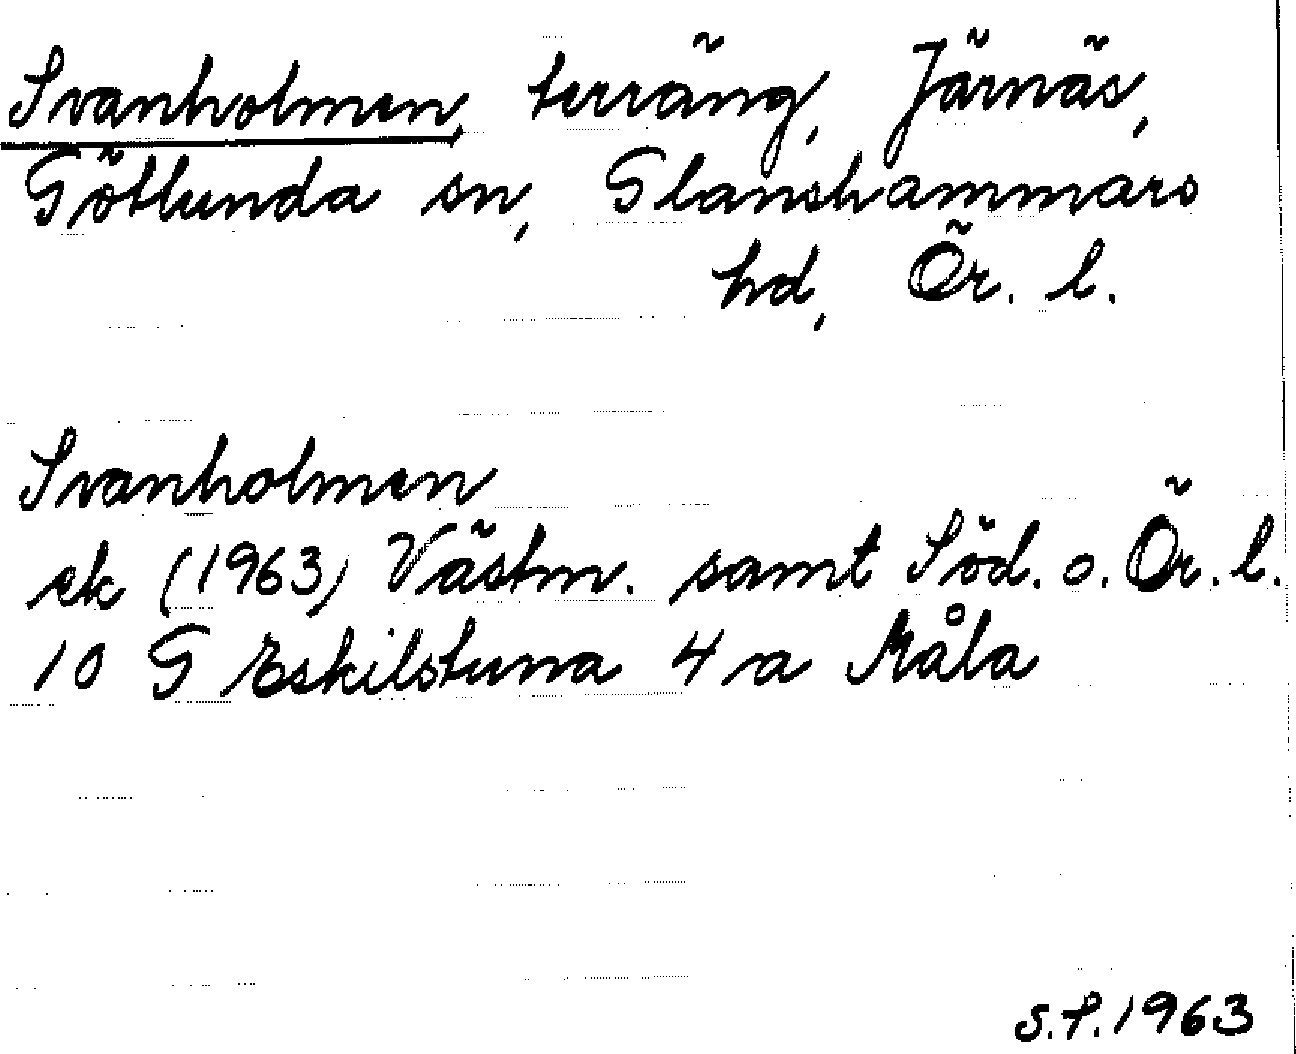 Svanholmen, terräng, Järnäs,
Götlunda sn, Glanshammars
hd, Ör. l.
Svanholmen
ek (1963) Västm. samt Söd. o. Ör. l.
10 G Eskilstuna 4 a Måla
S.P. 1963